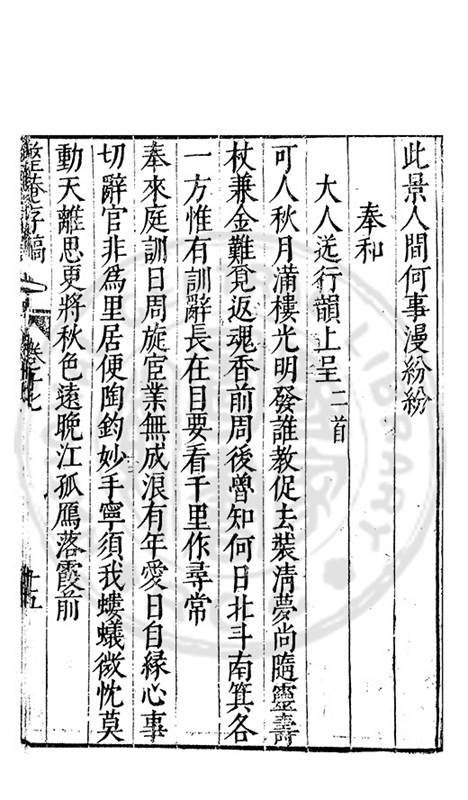 此景人間何事漫紛紛
奉和
大人送行韻上呈二首
可人秋月滿樓光明發誰教促去裝清夢尚隨靈壽
杖兼金難覓返魂香前周後魯知何日北斗南箕各
一方惟有訓辭長在目要看千里作尋常
奉來庭訓日周旋宦業無成浪有年愛日自緣心事
切辭官非爲里居便陶鈞妙手寧須我螻蟻微忱莫
動天離思更將秋色遠晚江孤鴈落霞前
整菴存稿
卷十七
十五